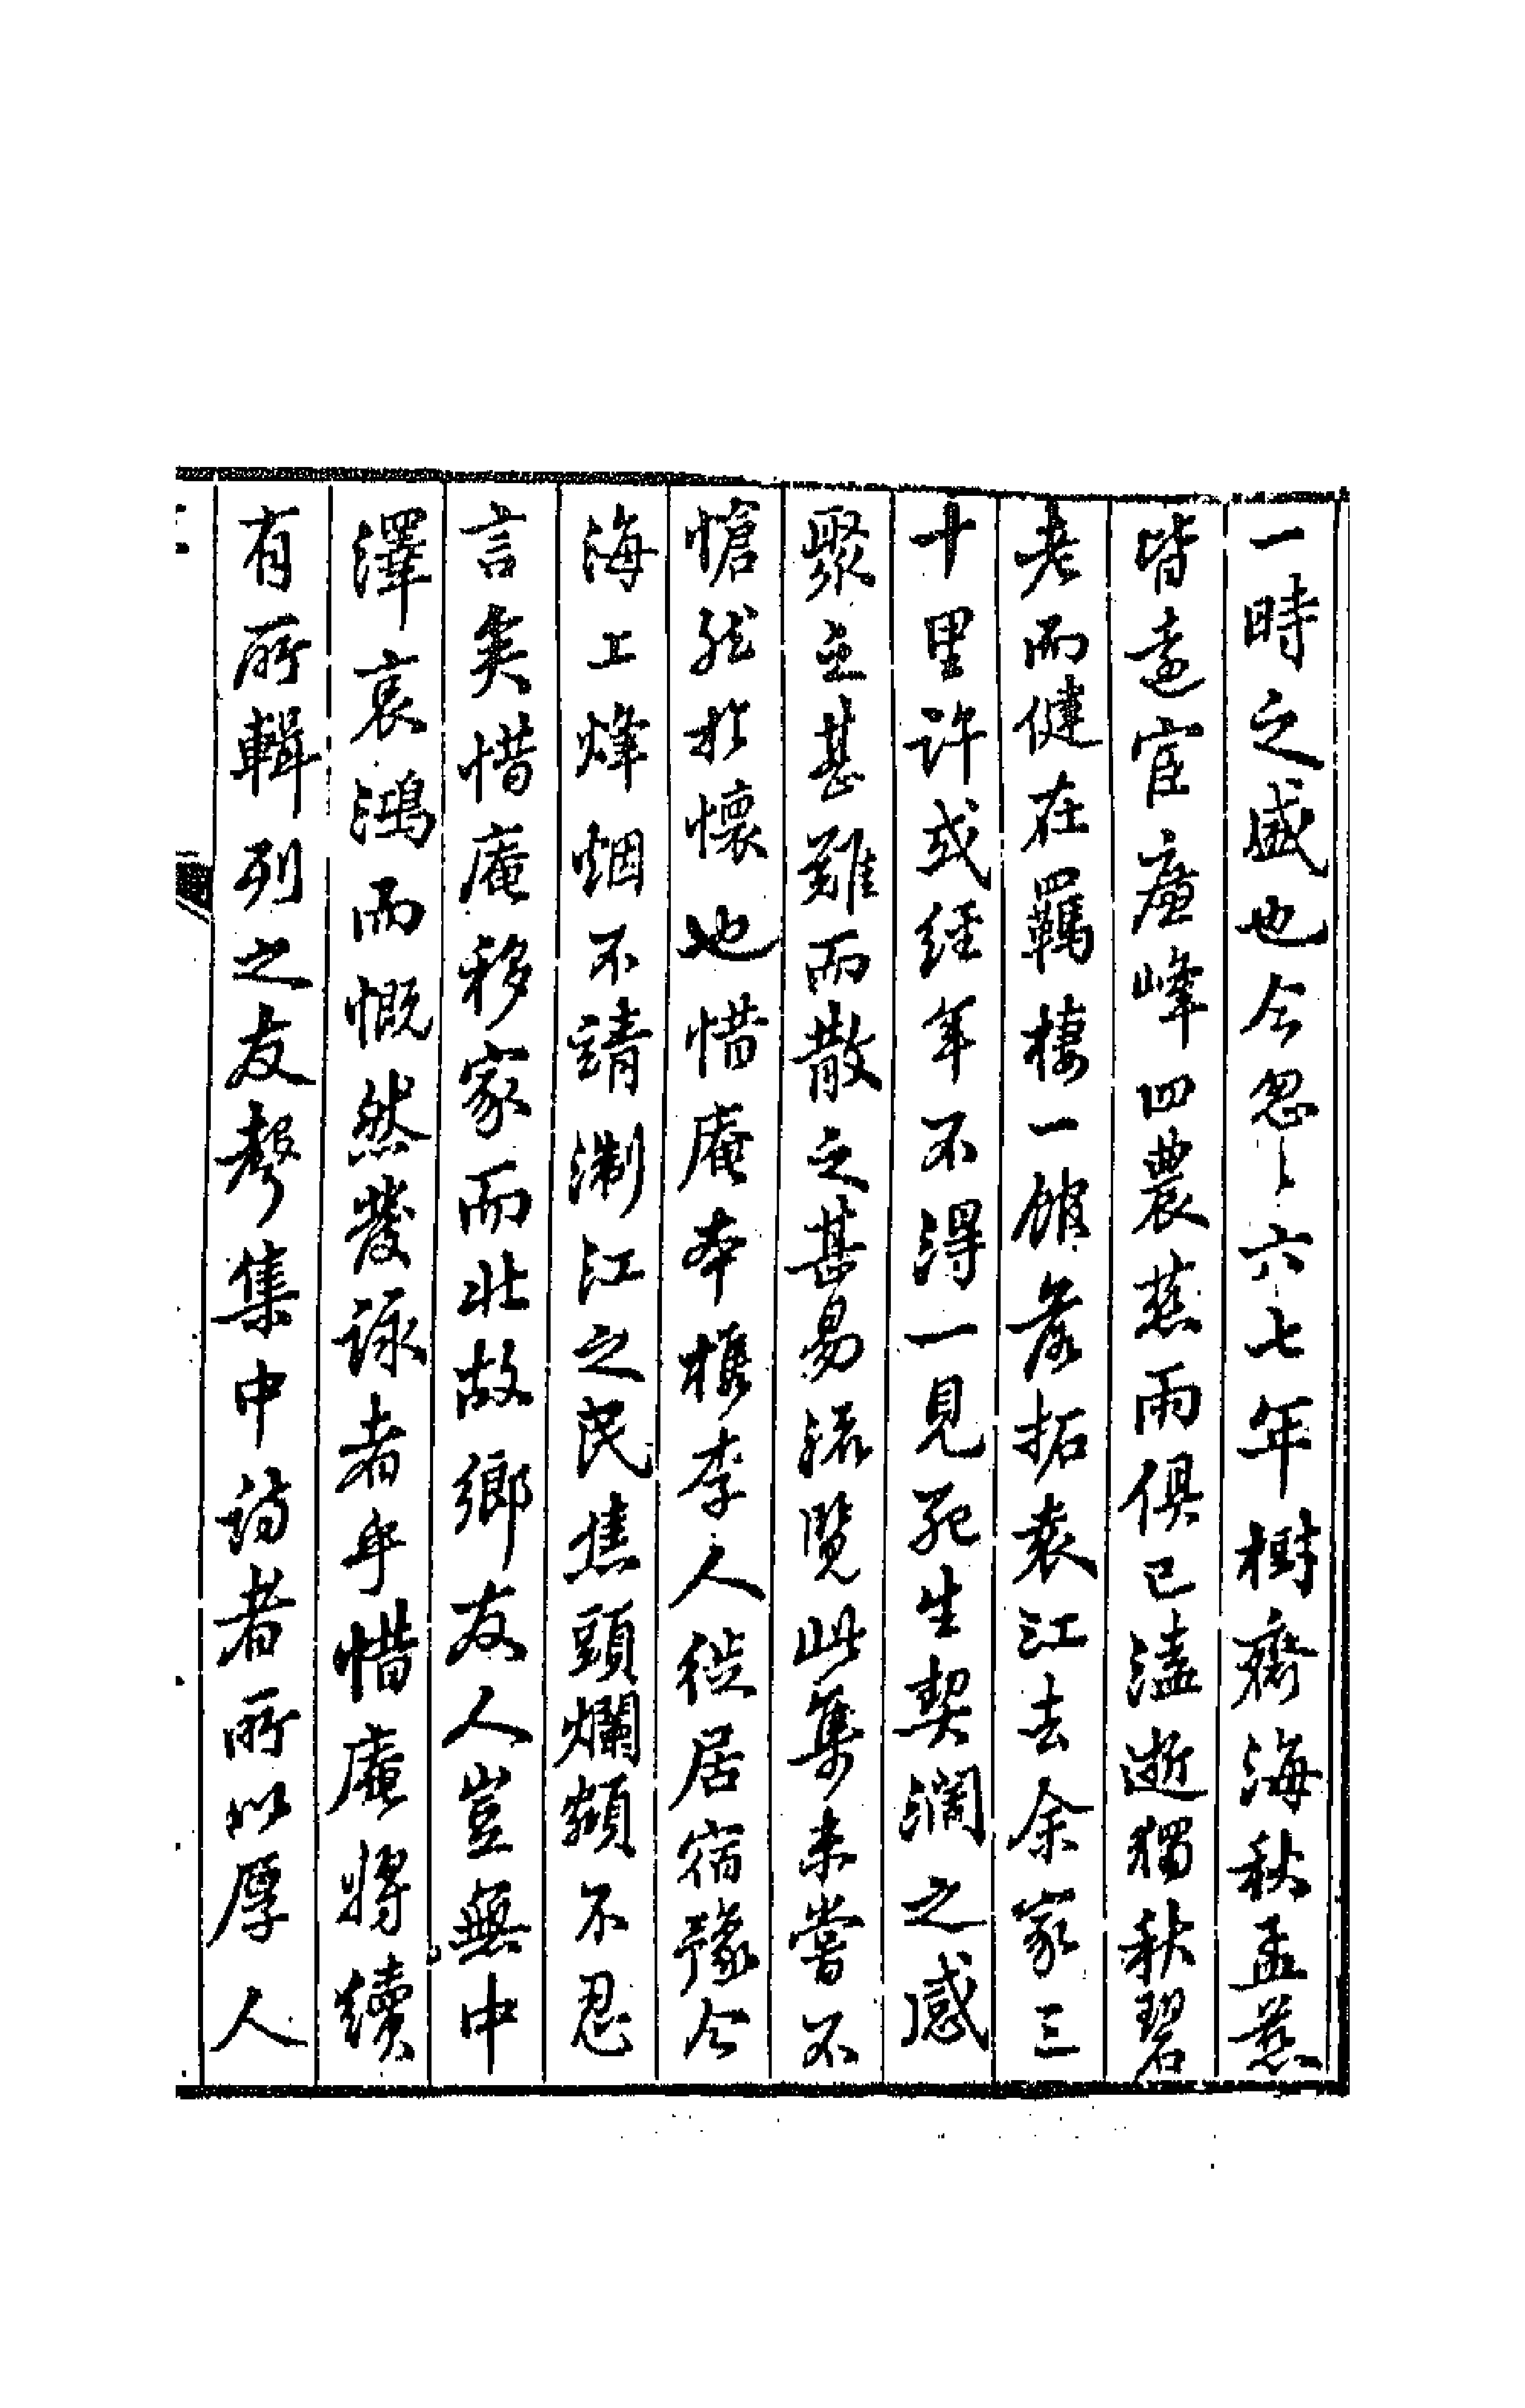 一時之盛也今忽〻六七年樹齋海秋孟慈
皆遠宦廉峰四農慈雨俱已溘逝獨秋碧
老而健在羈棲一館落拓袁江去余家三
十里許或經年不得一見死生契濶之感
聚之甚難而散之甚易流覽此集未嘗不
愴然於懷也惜庵本檇李人徙居宿豫今
海上烽烟不靖淛江之民焦頭爛額不忍
言矣惜庵移家而北故鄉友人豈無中
澤哀鴻而慨然發詠者乎惜庵將續
有所輯列之友聲集中詩者所以厚人